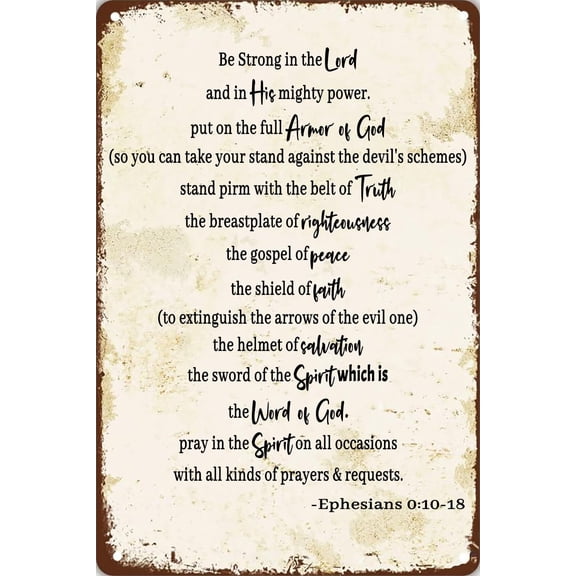 Be Strong in the Lord
and in His mighty power.
put on the full Armor of God
(so you can take your stand against the devil's schemes)
stand pirm with the belt of Truth
the breastplate of righteousness
the gospel of peace
the shield of faith
(to extinguish the arrows of the evil one)
the helmet of salvation
the sword of the Spirit which is
the Word of God.
pray in the Spirit on all occasions
with all kinds of prayers & requests.
-Ephesians 0:10-18